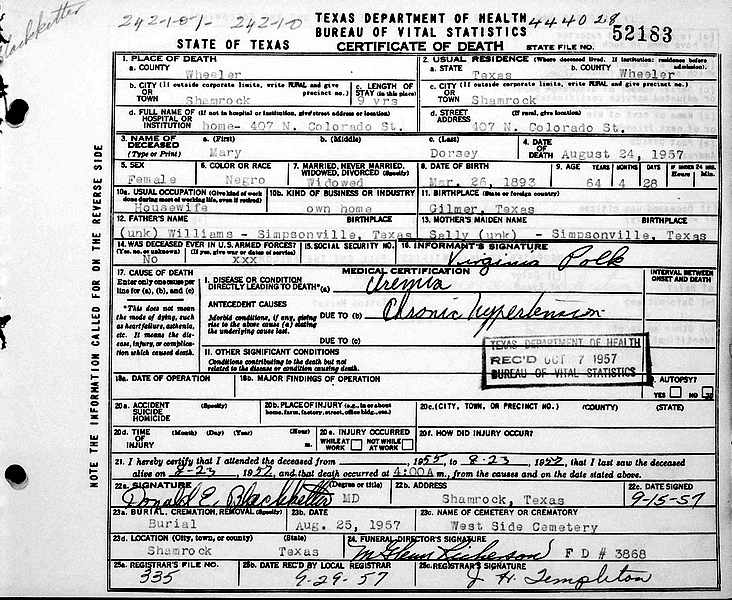 Blackketter
242-10/- 242-10
TEXAS DEPARTMENT OF HEALTH
444028
BUREAU OF VITAL STATISTICS
52183
STATE OF TEXAS CERTIFICATE OF DEATH STATE FILE NO.
1. PLACE OF DEATH
a. COUNTY
Wheeler
2. USUAL RESIDENCE (Where deceased lived. If institution: residence before admission).
a. STATE b. COUNTY
Texas Wheeler
b. CITY (If outside corporate limits, write RURAL and give precinct no.)
OR
TOWN Shamrock
c. LENGTH OF
STAY (in this place)
9 yrs
c. CITY (If outside corporate limits, write RURAL and give precinct no.)
OR
TOWN Shamrock
d. FULL NAME OF (If not in hospital or institution, give street address or location)
HOSPITAL OR
INSTITUTION home- 407 N. Colorado St.
d. STREET (If rural, give location)
ADDRESS
407 N. Colorado St.
3. NAME OF a. (First) b. (Middle) c. (Last)
DECEASED
(Type or Print) Mary Dorsey
4. DATE
OF
DEATH August 24, 1957
5. SEX
Female
6. COLOR OR RACE
Negro
7. MARRIED, NEVER MARRIED,
WIDOWED, DIVORCED (Specify)
Widowed
8. DATE OF BIRTH
Mar. 26, 1893
9. AGE YEARS MONTHS DAYS IF UNDER 24 HRS.
Hours Min.
64 4 28
10a. USUAL OCCUPATION (Give kind of work
done during most of working life, even if retired)
Housewife
10b. KIND OF BUSINESS OR INDUSTRY
own home
11. BIRTHPLACE (State or foreign country)
Gilmer, Texas
12. FATHER'S NAME BIRTHPLACE
(unk) Williams - Simpsonville, Texas
13. MOTHER'S MAIDEN NAME BIRTHPLACE
Sally (unk) - Simpsonville, Texas
14. WAS DECEASED EVER IN U.S. ARMED FORCES?
(Yes, no, or unknown) (If yes, give war or dates of service)
No xxx
15. SOCIAL SECURITY NO.
16. INFORMANT'S SIGNATURE
Virginia Polk
17. CAUSE OF DEATH
Enter only one cause per
line for (a), (b), and (c)
*This does not mean
the mode of dying, such
as heart failure, asthenia,
etc. It means the disease,
injury, or complication
which caused death.
MEDICAL CERTIFICATION
INTERVAL BETWEEN
ONSET AND DEATH
I. DISEASE OR CONDITION
DIRECTLY LEADING TO DEATH* (a) Uremia
ANTECEDENT CAUSES
Morbid conditions, if any, giving
rise to the above cause (a) stating
the underlying cause last.
DUE TO (b) Chronic hypertension
DUE TO (c)
II. OTHER SIGNIFICANT CONDITIONS
Conditions contributing to the death but not
related to the disease or condition causing death.
TEXAS DEPARTMENT OF HEALTH
REC'D OCT 7 1957
BUREAU OF VITAL STATISTICS
18a. DATE OF OPERATION
18b. MAJOR FINDINGS OF OPERATION
AUTOPSY?
YES NO
20a. ACCIDENT (Specify)
SUICIDE
HOMICIDE
20b. PLACE OF INJURY (e.g., in or about
home, farm, factory, street, office bldg., etc.)
20c. (CITY, TOWN, OR PRECINCT NO.) (COUNTY) (STATE)
20d. TIME (Month) (Day) (Year) (Hour)
OF
INJURY m.
20e. INJURY OCCURRED
WHILE AT WORK NOT WHILE AT WORK
20f. HOW DID INJURY OCCUR?
21. I hereby certify that I attended the deceased from 1955, to 8-23, 1957, that I last saw the deceased
alive on 8-23, 1957, and that death occurred at 4:00A m., from the causes and on the date stated above.
22a. SIGNATURE (Degree or title)
Donald E. Blackketter MD
22b. ADDRESS
Shamrock, Texas
22c. DATE SIGNED
9-15-57
23a. BURIAL, CREMATION, REMOVAL (Specify)
Burial
23b. DATE
Aug. 25, 1957
23c. NAME OF CEMETERY OR CREMATORY
West Side Cemetery
23d. LOCATION (City, town, or county) (State)
Shamrock Texas
24. FUNERAL DIRECTOR'S SIGNATURE
Richerson F D # 3868
25a. REGISTRAR'S FILE NO.
335
25b. DATE REC'D BY LOCAL REGISTRAR
9-29-57
25c. REGISTRAR'S SIGNATURE
J. H. Templeton
NOTE THE INFORMATION CALLED FOR ON THE REVERSE SIDE